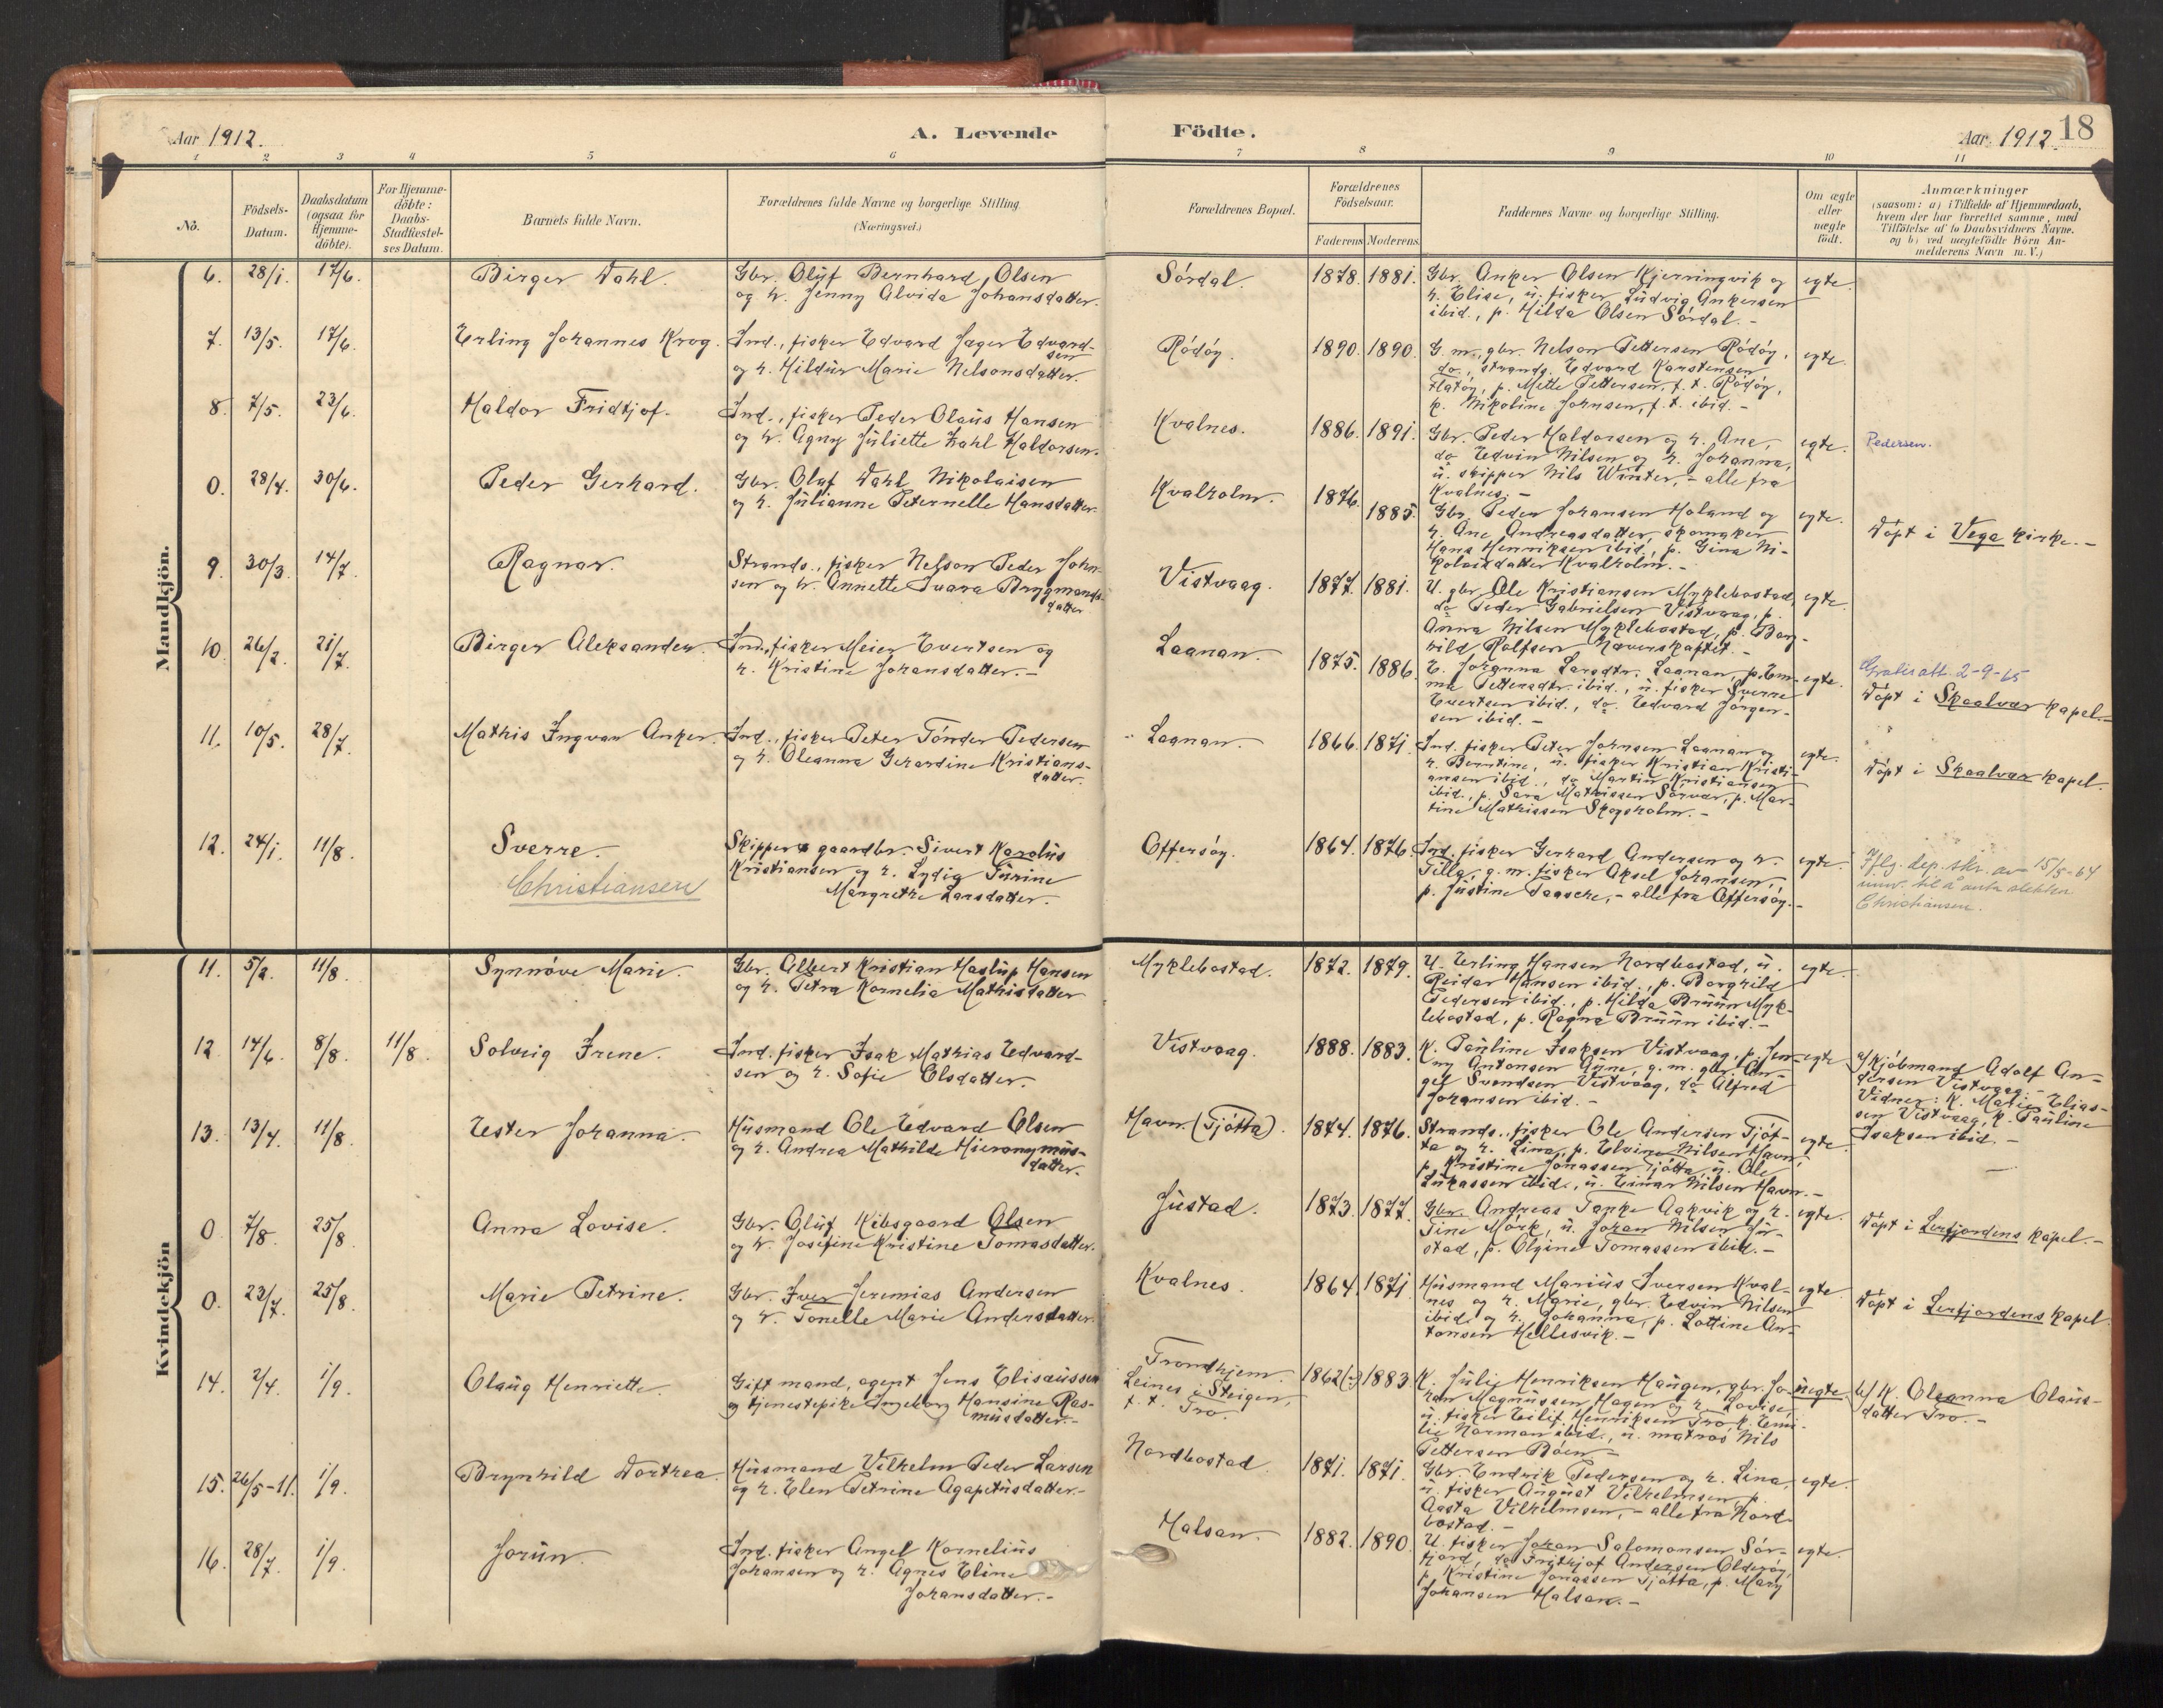 Aar 1912.
A. Levende
Födte.
Aar 1912.
18
1 2 3 4 5 6 7 8 9 10 11
No.
Födsels-
Datum.
Daabsdatum
(ogsaa for
Hjemme-
döbte).
For Hjemme-
döbte:
Daabs-
Stadfæstel-
ses Datum.
Barnets fulde Navn.
Forældrenes fulde Navne og borgerlige Stilling.
(Næringsvei.)
Forældrenes Bopæl.
Forældrenes
Födselsaar.
Faderens Moderens
Faddernes Navne og borgerlige Stilling.
Om ægte
eller
uægte
födt.
Anmærkninger
(saasom: a) i Tilfælde af Hjemmedaab,
hvem der har forrettet samme, med
Tilföielse af to Daabsvidners Navne.
og b) ved uægtefödte Börn An-
melderens Navn m. V.)
Mandkjön.
6. 28/1. 17/6.
Birger Dahl.
Gbr. Oluf Bernhard Olsen
og h. Jenny Alvida Johansdatter.
Sördal.
1878. 1881.
Gbr. Anker Olsen Kjerringvik og
h. Elise, u. fisker Ludvig Ankersen
ibid., p. Hilda Olsen Sördal. -
egte.
7. 13/5. 17/6.
Erling Johannes Krog.
Ind., fisker Edvard Jæger Edvard-
sen
og h. Hildur Marie Nelsonsdatter.
Rödöy.
1890. 1890.
G. m., gbr. Nelson Pettersen Rödöy,
do., strands. Edvard Karstensen
Flatöy, p. Mette Pettersen, f. t. Rödöy,
k. Nikoline Johnsen, f. t. ibid. -
egte.
8. 7/5. 23/6.
Haldor Fridtjof.
Ind., fisker Peder Olaus Hansen
og h. Agny Juliette Zahl Haldorsen.
Kvalnes.
1886. 1891.
Gbr. Peder Haldorsen og h. Ane,
do Edvin Nilsen og h. Johanna,
u. skipper Nils Winter, - alle fra
Kvalnes. -
egte.
Pedersen.
0. 28/4. 30/6.
Peder Gerhard.
Gbr. Olaf Dahl Nikolaisen
og h. Julianne Peternelle Hansdatter.
Kvalholm.
1876. 1885.
Gbr. Peder Johansen Holand og
h. Ane Andreasdatter, skomaker
Hans Henriksen ibid., p. Gina Ni-
kolaisdatter Kvalholm. -
egte.
Döpt i Vega kirke. -
9. 30/3. 14/7.
Ragnar.
Strands., fisker Nelson Peder John-
sen og h. Annette Ivara Brygmands-
datter
Vistvaag.
1877. 1881.
U. gbr. Ole Kristiansen Myklebostad,
do Peder Gabrielsen Vistvaag, p.
Anna Nilsen Myklebostad, p. Borg-
hild Rolfsen Næverskaftet. -
egte.
10. 26/2. 21/7.
Birger Aleksander.
Ind., fisker Meier Evertsen og
h. Kristine Johansdatter. -
Laanan.
1875. 1886.
E. Johanna Larsdtr. Laanan, p. Em-
ma Pettersdtr. ibid., u. fisker Sverre
Evertsen ibid., do. Edvard Jörgen-
sen ibid. -
egte.
Gratis att. 2-9-65
Döpt i Skaalvær kapel. -
11. 10/5. 28/7.
Mathis Ingvar Anker.
Ind., fisker Peter Tönder Pedersen
og h. Oleanna Gerardine Kristians-
datter.
Laanan.
1866. 1871.
Ind. fisker Peter Johnsen Laanan og
h. Berntine, u. fisker Kristian Kristi-
ansen ibid., do Martin Kristiansen
ibid., p. Sara Mathissen Sörvær, p. Mar-
tine Mathissen Skogsholm. -
egte.
Döpt i Skaalvær kapel.
12. 24/1. 11/8.
Sverre.
Christiansen
Skipper & gaardbr. Sivert Karolus
Kristiansen og h. Lydia Turine
Margrethe Larsdatter.
Offersöy.
1864. 1876.
Ind. fisker Gerhard Andersen og h.
Tilla, g. m. fisker Aksel Johansen,
p. Justine Saasere, - alle fra Offersöy. -
egte.
Iflg. dep. skr. av 15/5-64
til å anta slektsn.
Christiansen.
Kvindekjön
11. 5/2. 11/8.
Synnöve Marie.
Gbr. Albert Kristian Haslup Hansen
og h. Petra Kornelia Mathisdatter
Myklebostad.
1872. 1879.
U. Erling Hansen Nordbostad, u.
Reidar Hansen ibid., p. Borghild
Pedersen ibid., p. Hilda Bruun Myk-
lebostad, p. Ragna Bruun ibid. -
egte.
12 14/6. 8/8. 11/8.
Solveig Irene.
Ind. fisker Isak Mathias Edvard-
sen og h. Sofie Olsdatter.
Vistvaag.
1888. 1883.
K. Pauline Isaksen Vistvaag, p. Jen-
ny Antonsen Aune, g. m. gbr. An-
gel Svendsen Vistvaag, do Alfred
Johansen ibid. -
egte
a) Kjöbmand Adolf An-
dersen Vistvaag -
Vidner: K. Marie Elias-
sen Vistvaag, K. Pauline
Isaksen ibid. -
13. 13/4. 11/8.
Ester Johanna.
Husmand Ole Edvard Olsen
og h. Andrea Mathilde Hieronymus-
datter.
Havn (Tjötta).
1874. 1876.
Strands., fisker Ole Andersen Tjöt-
ta og h. Lina, p. Elvine Nilsen Havn,
p. Kristine Jonassen Tjötta, u. Ole
Lukassen ibid., u. Einar Nilsen Havn. -
egte.
0 7/8. 25/8
Anna Lovise.
Gbr. Oluf Kibsgaard Olsen
og h. Josefine Kristine Tomasdatter.
Justad.
1873. 1877.
Gbr. Andreas Tanke Aakvik og h.
Tine Mörk, u. Johan Nilsen Jur-
stad, p. Olgine Tomassen ibid. -
egte.
Döpt i Leirfjordens kapel. -
0. 23/7. 25/8.
Marie Petrine.
Gbr. Iver Jeremias Andersen
og h. Tonelle Marie Andersdatter.
Kvalnes.
1864. 1871.
Husmand Marius Iversen Kval-
nes og h. Marie, gbr. Edvin Nilsen
ibid. og h. Johanna, p. Lottine An-
tonsen Hellesvik. -
egte.
Döpt i Leirfjordens kapel.
14. 2/4. 1/9.
Olaug Henriette.
Gift mand, agent Jens Elisæussen
og tjenestepike Ingeborg Hansine Ras-
musdatter. -
Trondhjem.
Leines i Steigen,
t. t. Tro.
1862(?) 1883.
K. Julie Henriksen Haugen, gbr. Jo-
han Magnussen Hagen og h. Lovise,
u. fisker Eilif Henriksen Tro, k. Emi-
lie Norman ibid., u. matros Nils
Pettersen Böen -
uegte.
b) K. Oleanna Olaus-
datter Tro. -
15. 26/5-11. 1/9.
Brynhild Dorthea.
Husmand Vilhelm Peder Larsen
og h. Elen Petrine Agapetusdatter. -
Nordbostad
1871. 1871.
Gbr. Endrik Pedersen og h. Lina,
u. fisker August Vilhelmsen, p.
Aasta Vilhelmsen, - alle fra Nord-
bostad. -
egte.
16. 28/7. 1/9.
Jorun.
Ind. fisker Angel Kornelius
Johansen og h. Agnes Eline
Johansdatter. -
Halsan.
1882. 1890.
U. fisker Johan Salomonsen Sör-
fjord, do Frithjof Andersen Olderöy,
p. Kristine Jonassen Tjötta, p. Mary
Johansen Halsan. -
egte.